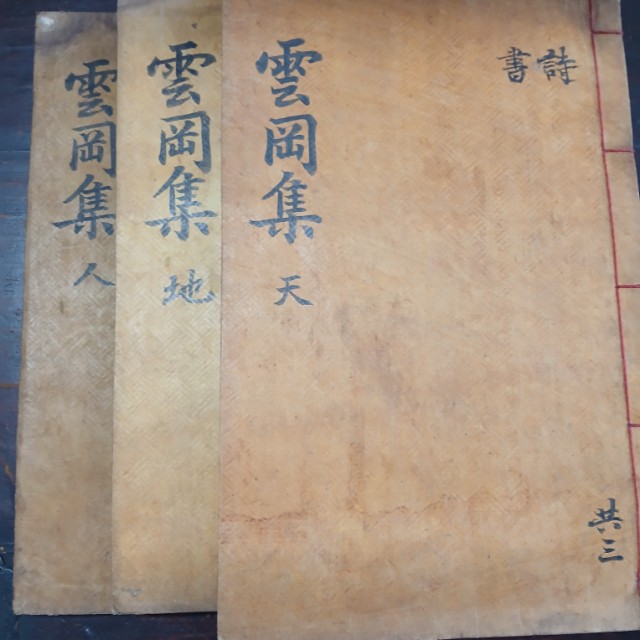 詩
書
雲岡集 天
共三
雲岡集 地
雲岡集 人